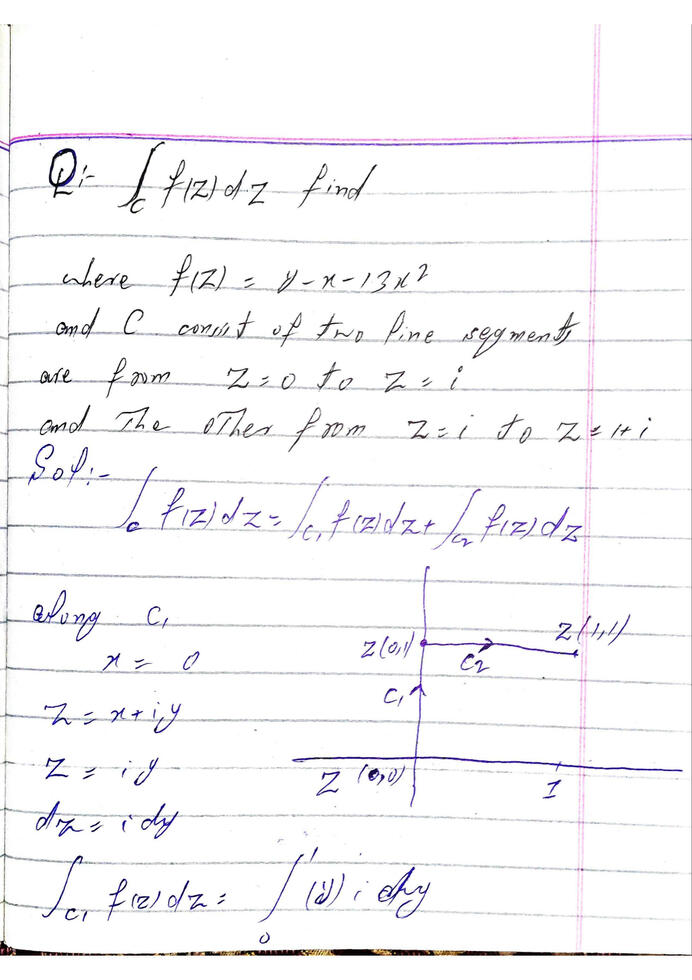 Q:- ∫_C f(z) dz find
where f(z) = y - x - i3x²
and C consist of two line segments
are from z = 0 to z = i
and The oTher from z = i to z = 1+i
Sol:-
∫_C f(z) dz = ∫_C₁ f(z) dz + ∫_C₂ f(z) dz
along C₁
x = 0
z = x + iy
z = iy
dz = i dy
∫_C₁ f(z) dz = ∫₀¹ (y) i dy
Z(0,1)
Z(1,1)
C₂
C₁
Z (0,0)
1